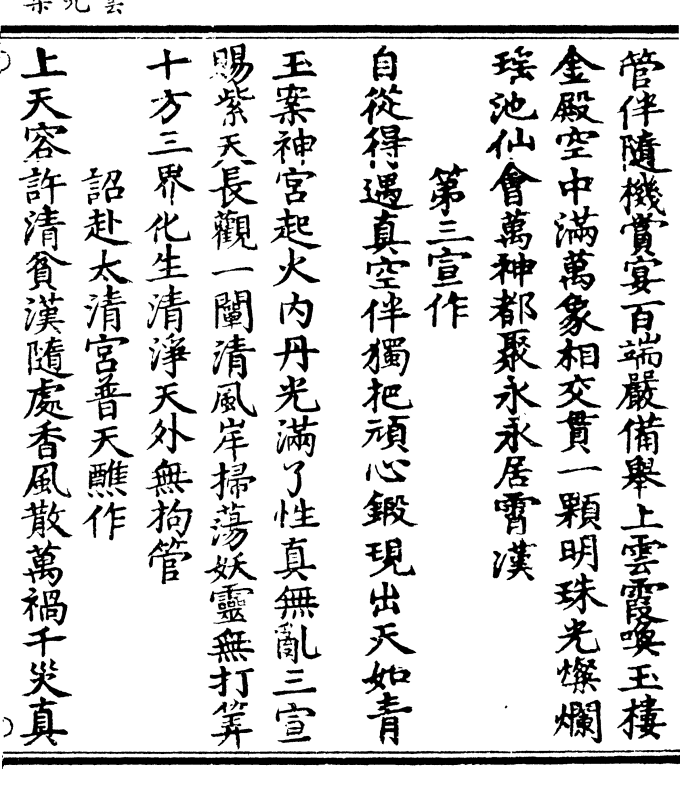 管伴隨機賞宴百端嚴備舉上雲霞喚玉樓
金殿空中滿萬象相交貫一顆明珠光燦爛
瑤池仙會萬神都聚永永居霄漢
第三宣作
自從得遇真空伴獨把頑心鍛現出天如青
玉案神宮起火內丹光滿了性真無亂三宣
賜紫天長觀一闡清風岸掃蕩妖靈無打筭
十方三界化生清淨天外無拘管
詔赴太清宮普天醮作
上天容許清貧漢隨處香風散萬禍千災真